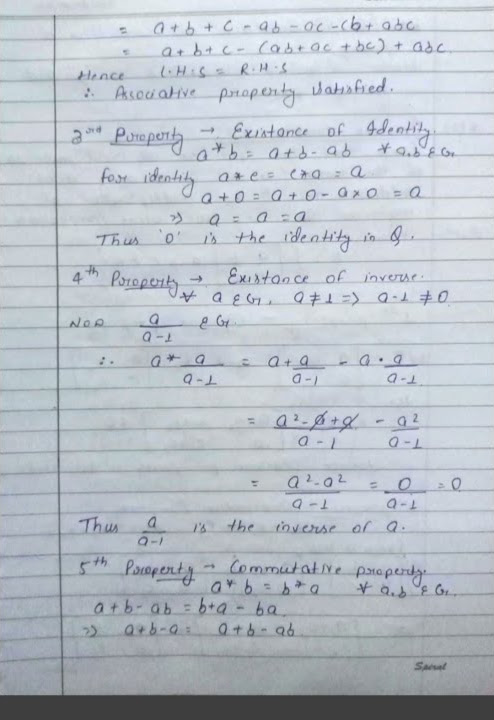 = a + b + c - ab - ac - cb + abc
= a + b + c - (ab + ac + bc) + abc
Hence L.H.S = R.H.S
∴ Associative property satisfied.
3rd Property → Existance of Identity.
a * b = a + b - ab ∀ a,b ε G
for identity a * e = e * a = a
a + 0 = a + 0 - a x 0 = a
⇒ a = a = a
Thus '0' is the identity in Q.
4th Property → Existance of inverse.
∀ a ε G, a ≠ 1 => a - 1 ≠ 0
Now a/a-1 ε G
∴ a * a/a-1 = a + a/a-1 - a . a/a-1
= a² - a + a/a-1 - a²/a-1
= a² - a²/a-1 = 0/a-1 = 0
Thus a/a-1 is the inverse of a.
5th Property → Commutative property.
a * b = b * a ∀ a,b ε G
a + b - ab = b + a - ba
⇒ a + b - a = a + b - ab
Spiral